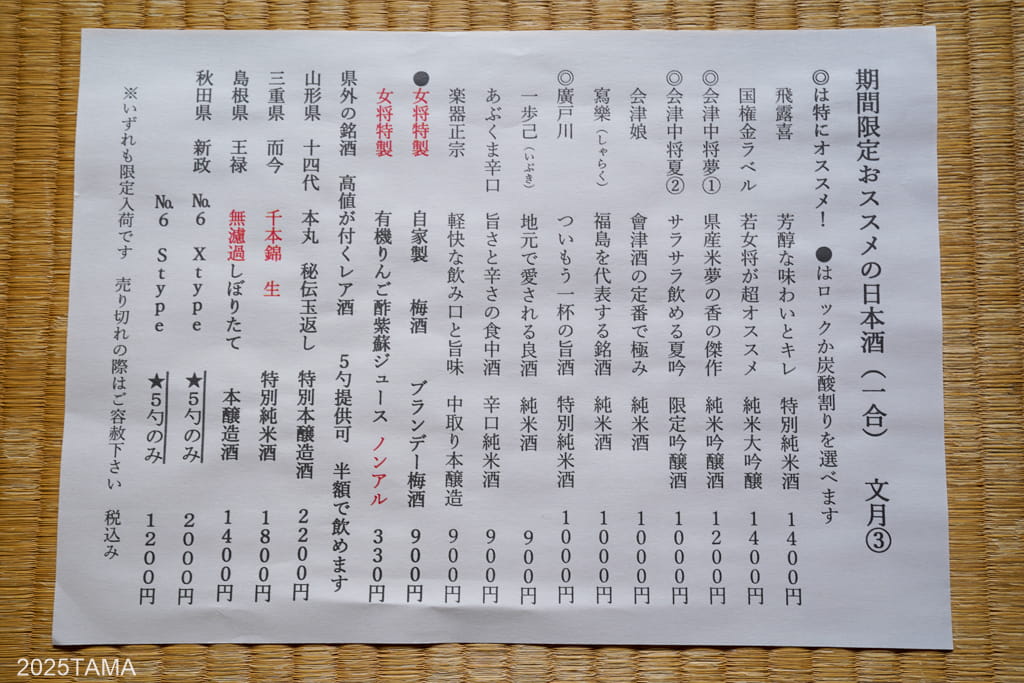 期間限定おススメの日本酒（一合） 文月③
◎は特にオススメ！ ●はロックか炭酸割りを選べます
飛露喜 芳醇な味わいとキレ 特別純米酒 1400円
国権金ラベル 若女将が超オススメ 純米大吟醸 1400円
◎会津中将夢① 県産米夢の香の傑作 純米吟醸酒 1200円
◎会津中将夏② サラサラ飲める夏吟 限定吟醸酒 1000円
会津娘 會津酒の定番で極み 純米酒 1000円
寫樂（しゃらく） 福島を代表する銘酒 純米酒 1000円
◎廣戸川 ついもう一杯の旨酒 特別純米酒 1000円
一歩己（いぶき） 地元で愛される良酒 純米酒 900円
あぶくま辛口 旨さと辛さの食中酒 辛口純米酒 900円
楽器正宗 軽快な飲み口と旨味 中取り本醸造 900円
●女将特製 自家製 梅酒 ブランデー梅酒 900円
女将特製 有機りんご酢紫蘇ジュース ノンアル 330円
県外の銘酒 高値が付くレア酒 5勺提供可 半額で飲めます
山形県 十四代 本丸 秘伝玉返し 特別本醸造酒 2200円
三重県 而今 千本錦 生 特別純米酒 1800円
島根県 王禄 無濾過しぼりたて 本醸造酒 1400円
秋田県 新政 №6 Xtype ★5勺のみ 2000円
№6 Stype ★5勺のみ 1200円
※いずれも限定入荷です 売り切れの際はご容赦下さい 税込み
2025TAMA